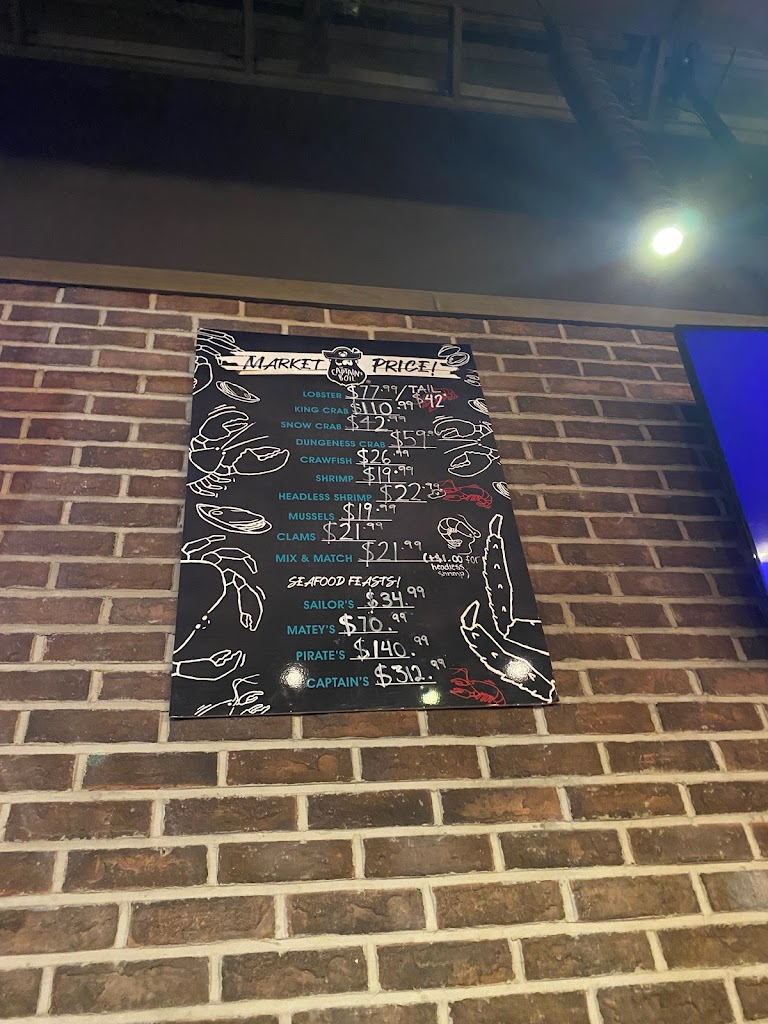 MARKET PRICE!
THE CAPTAIN'S BOIL
LOBSTER $77.99/TAIL $42
KING CRAB $110.99
SNOW CRAB $42.99
DUNGENESS CRAB $59.
CRAWFISH $26.99
SHRIMP $19.99
HEADLESS SHRIMP $22.99
MUSSELS $19.99
CLAMS $21.99
MIX & MATCH $21.99 (+$1.00 for
headless
shrimp)
SEAFOOD FEASTS!
SAILOR'S $34.99
MATEY'S $70.99
PIRATE'S $140.99
CAPTAIN'S $312.99